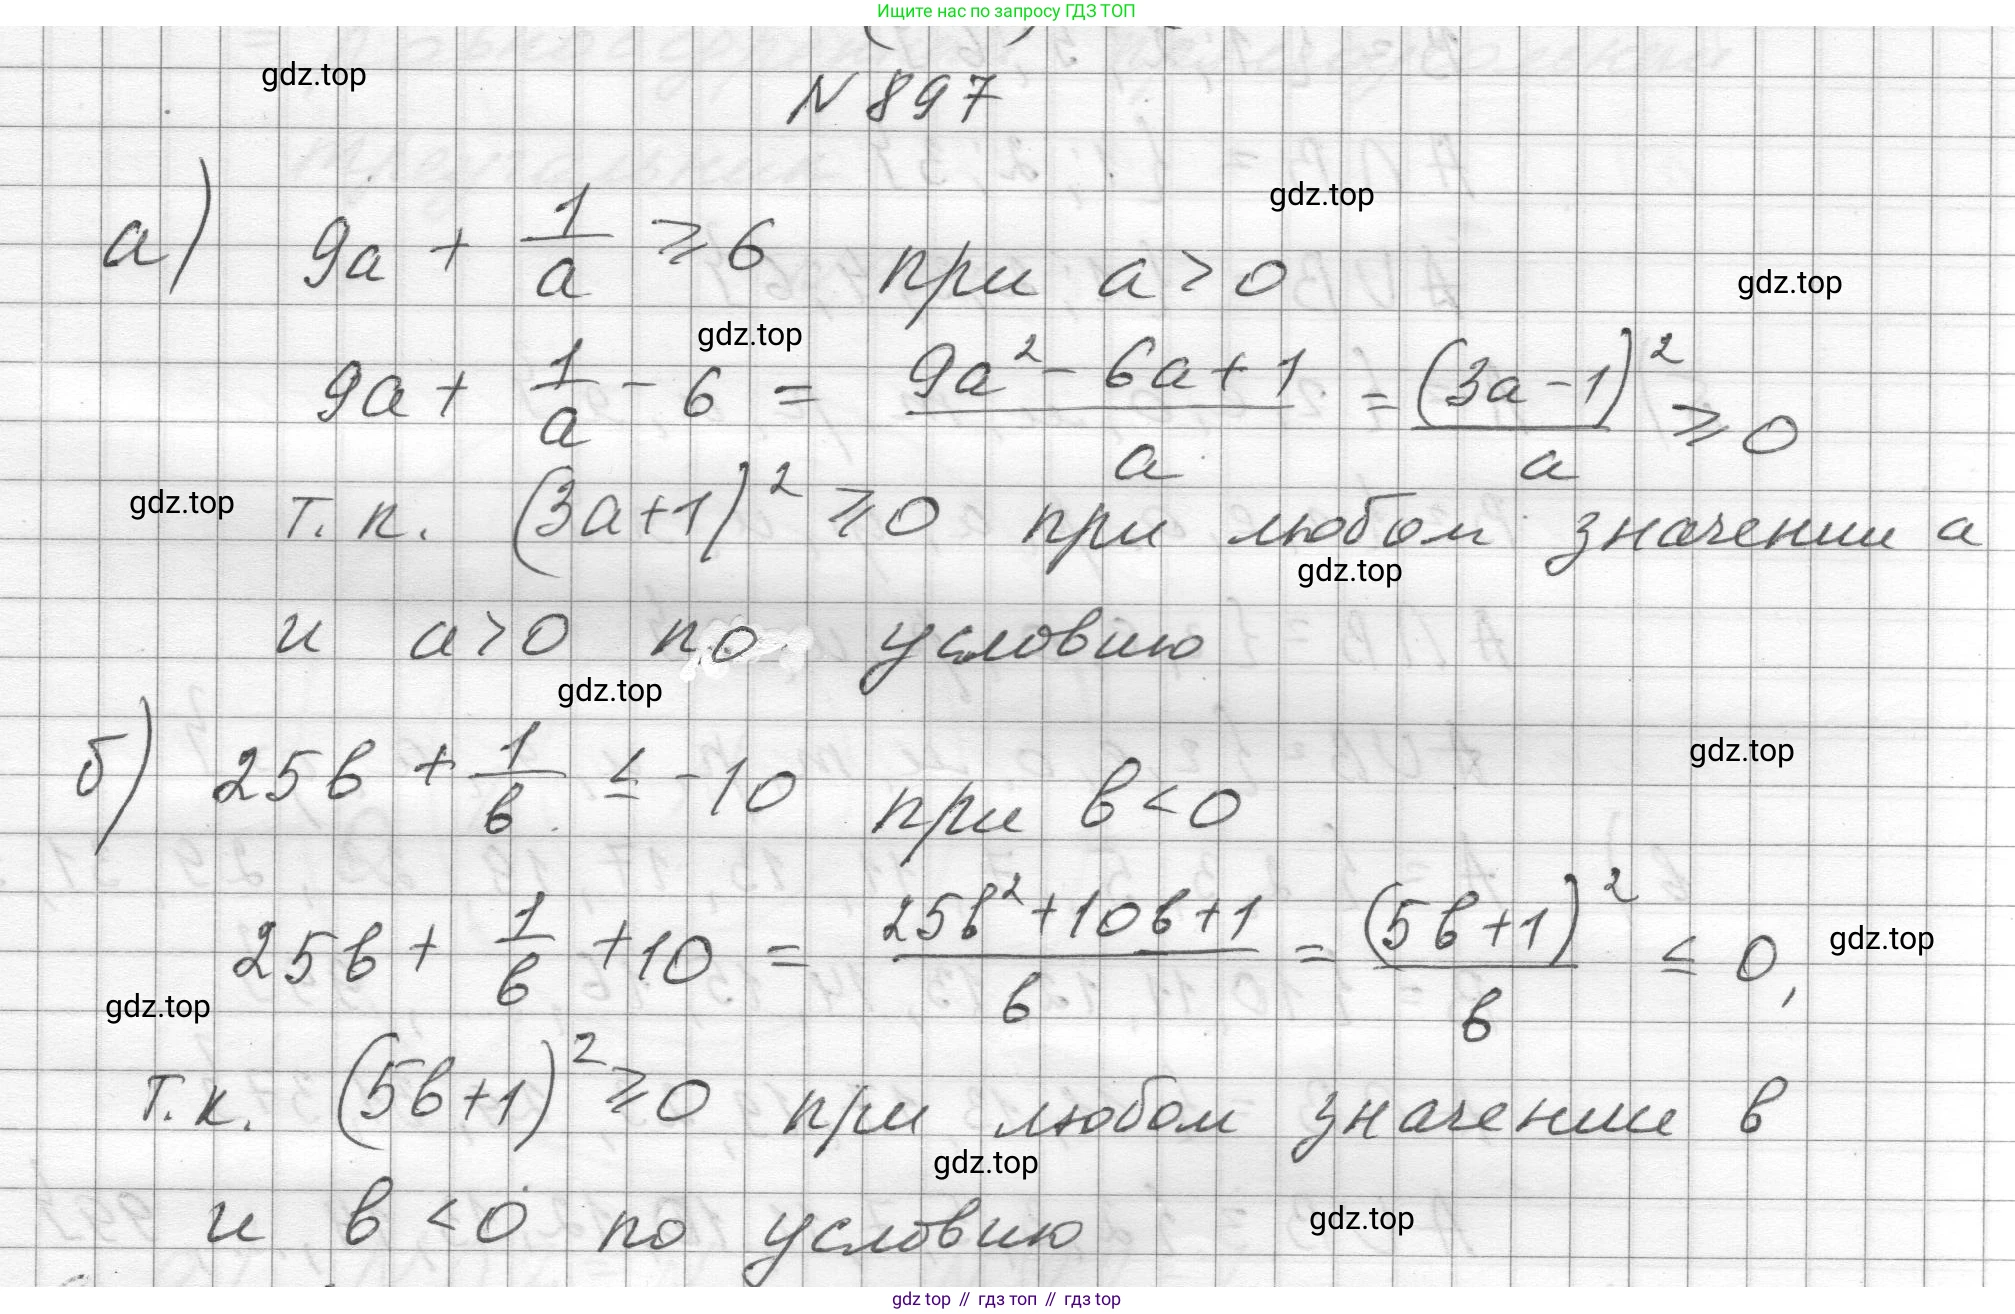 Ищите нас по запросу ГДЗ ТОП
N 897
gdz.top
gdz.top
а) 9a + 1/a ⩾ 6 при a > 0
gdz.top
gdz.top
9a + 1/a - 6 = (9a² - 6a + 1)/a = (3a - 1)²/a ⩾ 0
gdz.top
т.к. (3a+1)² ⩾ 0 при любом значении a
gdz.top
и a > 0 по условию
gdz.top
б) 25b + 1/b ≤ -10 при b < 0
gdz.top
25b + 1/b + 10 = (25b² + 10b + 1)/b = (5b + 1)²/b ≤ 0,
gdz.top
gdz.top
т.к. (5b+1)² ⩾ 0 при любом значении b
gdz.top
и b < 0 по условию
gdz.top
gdz top // гдз топ // гдз top